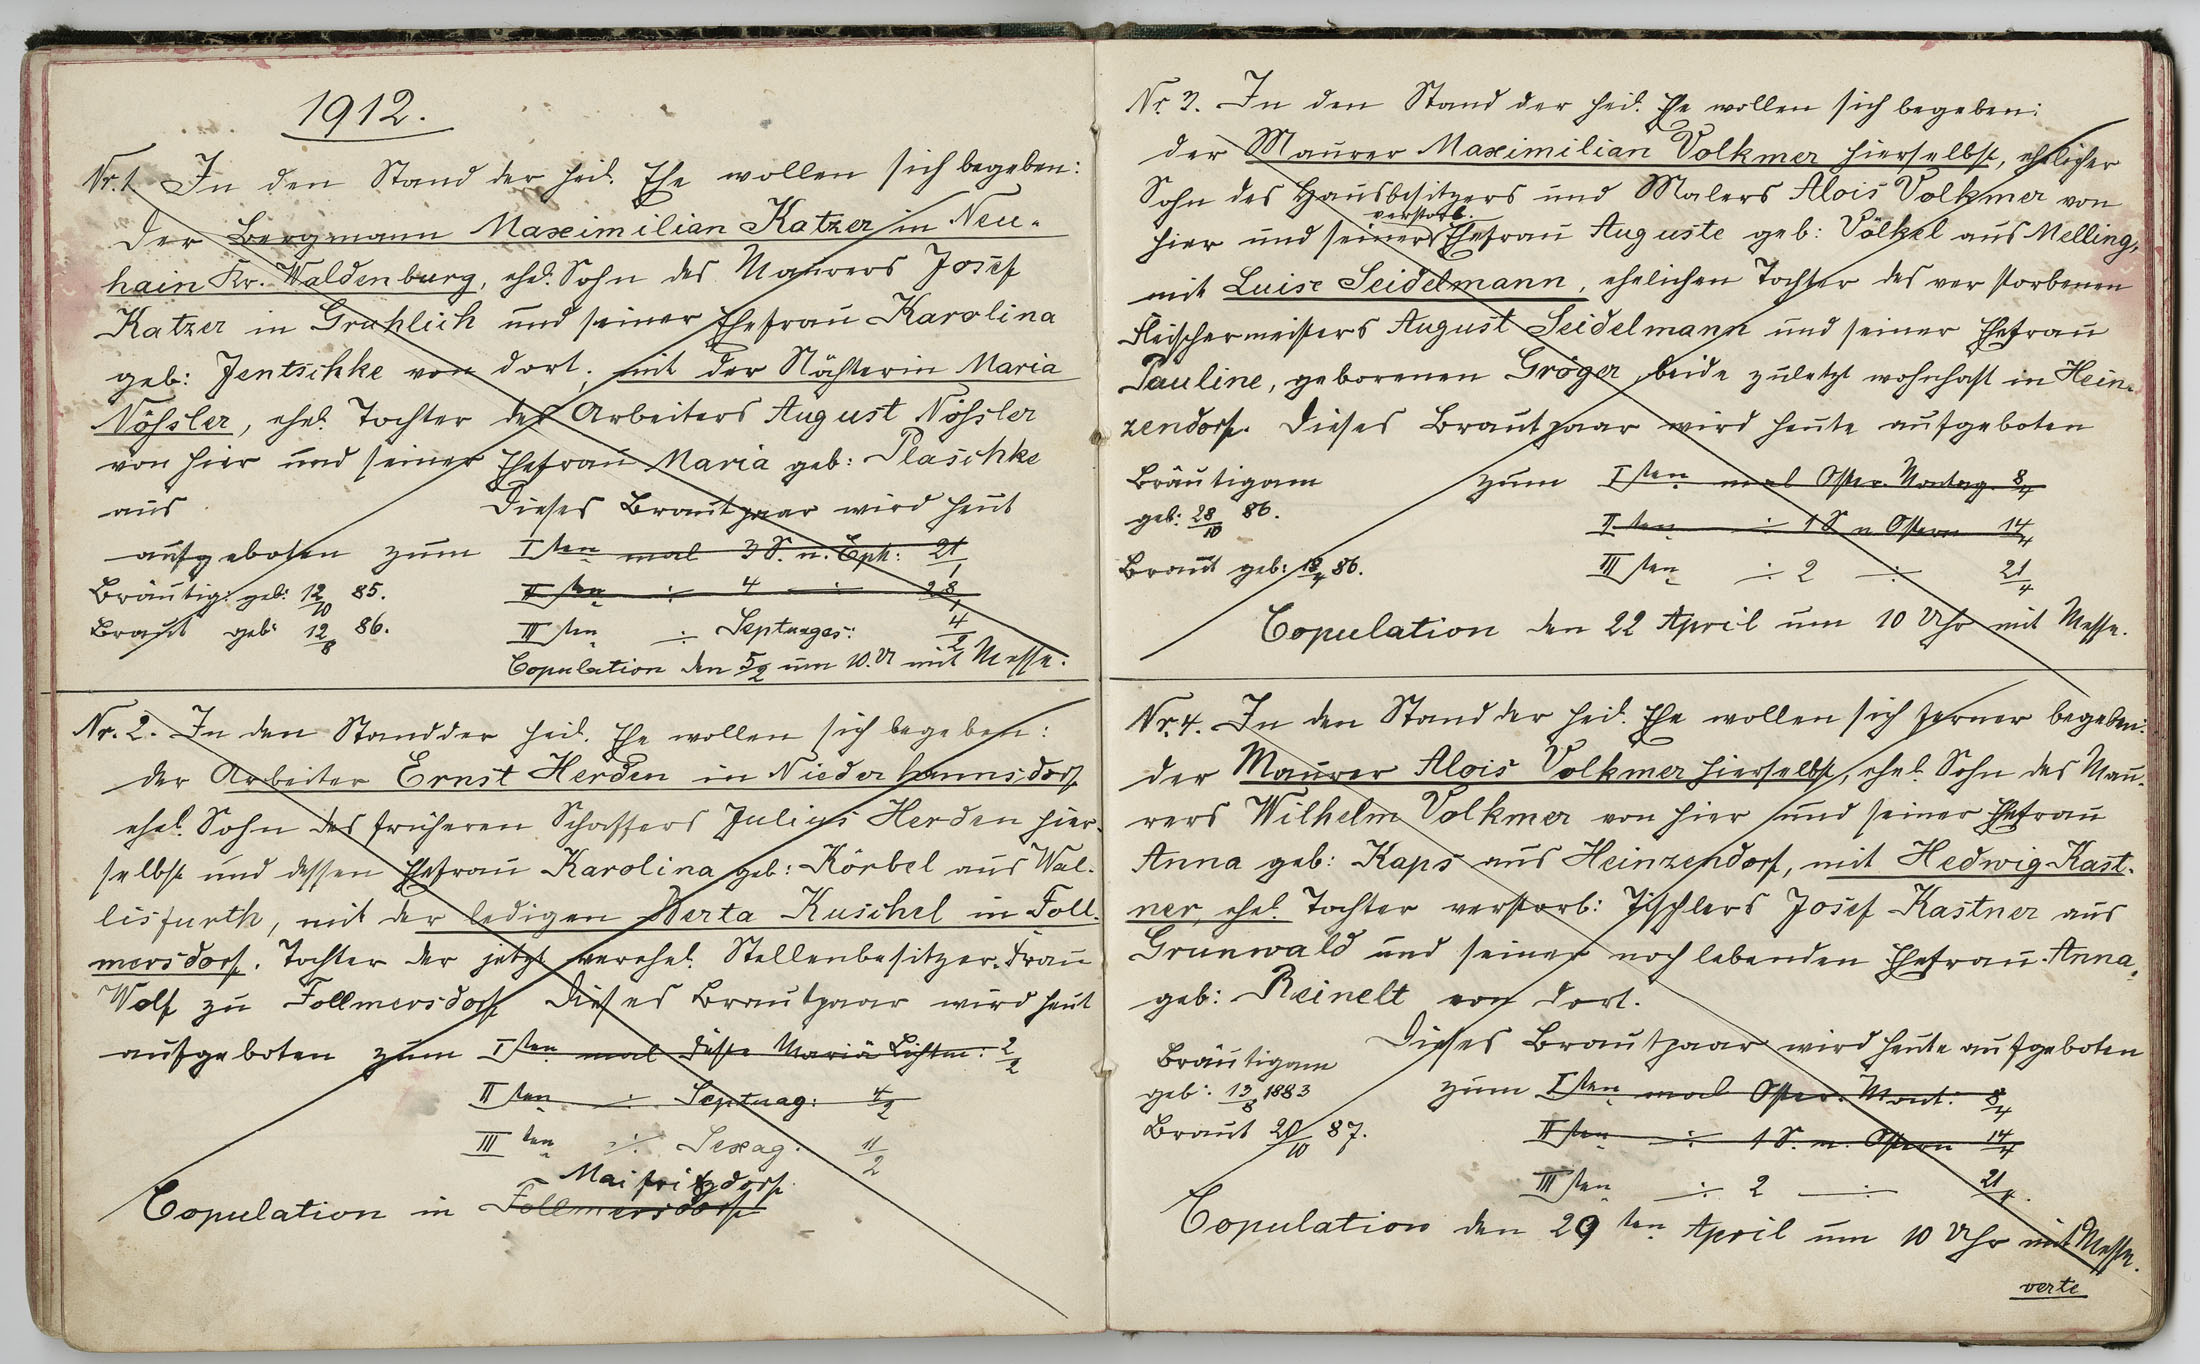 1912.
Nr. 1. In den Stand der heil. Ehe wollen sich begeben:
der Bergmann Maximilian Katzer in Neu-
hain Kr. Waldenburg, ehel. Sohn des Maurers Josef
Katzer in Gruhlich und seiner Ehefrau Karolina
geb: Jentschke von dort, mit der Nähterin Maria
Nößler, ehel. Tochter des Arbeiters August Nößler
von hier und seiner Ehefrau Maria geb: Plaschke
aus Dieses Brautpaar wird heut
aufgeboten zum I ten mal 3 S. n. Eph: 21/1
Bräutig: geb: 12/10 85. II ten ÷ 4 ÷ 28/1
Braut geb: 12/8 86. III ten ÷ Septuages: 4/2
Copulation den 5/2 um 10. U mit Messe.
Nr. 2. In den Stand der heil. Ehe wollen sich begeben:
der Arbeiter Ernst Herden in Niederhannsdorf
ehel. Sohn des früheren Schaffers Julius Herden hier-
selbst und dessen Ehefrau Karolina geb: Körbel aus Wal-
lisfurth, mit der ledigen Berta Kuschel in Foll-
mersdorf. Tochter der jetzt verehel. Stellenbesitzer-Frau
Wolf zu Follmersdorf Dieses Brautpaar wird heut
aufgeboten zum I ten mal Mariä Lichtm: 2/2
II ten ÷ Septuag: 4/2
III ten ÷ Sexag. 11/2
Maifritzdorf
Copulation in Follmersdorf
Nr. 3. In den Stand der heil. Ehe wollen sich begeben:
der Maurer Maximilian Volkmer hierselbst, ehelicher
Sohn des Hausbesitzers und Malers Alois Volkmer von
verstorb.
hier und seiner Ehefrau Auguste geb: Völkel aus Melling,
mit Luise Seidelmann, ehelichen Tochter des verstorbenen
Fleischermeisters August Seidelmann und seiner Ehefrau
Pauline, geborenen Gröger, beide zuletzt wohnhaft in Hein-
zendorf. Dieses Brautpaar wird heute aufgeboten
Bräutigam zum I sten mal Oster-Montag. 8/4
geb: 28/10 86. II ten ÷ 1 S. n. Ostern 14/4
Braut geb: 18/4 86. III ten ÷ 2 ÷ 21/4
Copulation den 22 April um 10 Uhr mit Messe.
Nr. 4. In den Stand der heil. Ehe wollen sich ferner begeben:
der Maurer Alois Volkmer hierselbst, ehel. Sohn des Mau-
rers Wilhelm Volkmer von hier und seiner Ehefrau
Anna geb: Kaps aus Heinzendorf, mit Hedwig Kast-
ner, ehel. Tochter verstorb: Tischlers Josef Kastner aus
Grunwald und seiner noch lebenden Ehefrau Anna,
geb: Reinelt von dort.
Dieses Brautpaar wird heute aufgeboten
Bräutigam
geb: 13/8 1883 zum I ten mal Oster-Mont: 8/4
Braut 20/10 87. II ten ÷ 1 S. n. Ostern 14/4
III ten ÷ 2 ÷ 21/4.
Copulation den 29 ten April um 10 Uhr mit Messe.
verte